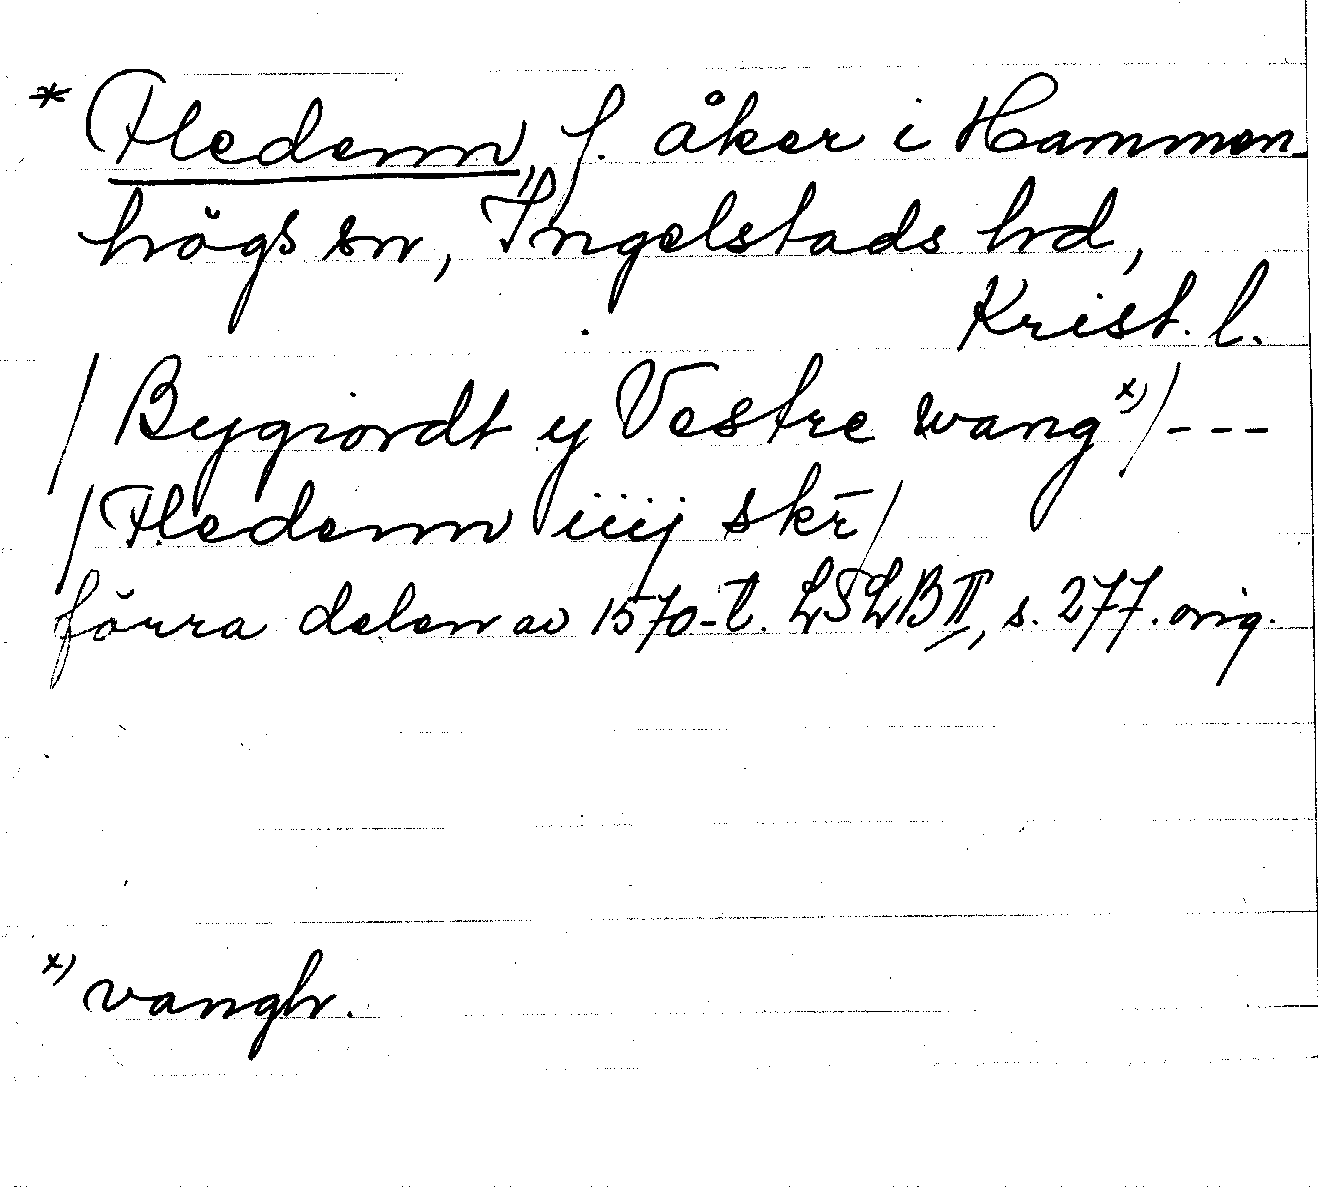 * Fledenn, f. åker i Hammen-
högs sn, Ingelstads hd,
Krist. l.
/ Bygiordt y Vestre wang x) / ---
/ Fledenn iiij skr̄ /
förra delen av 1570-t. LSLB II, s. 277. orig.
x) vangh.